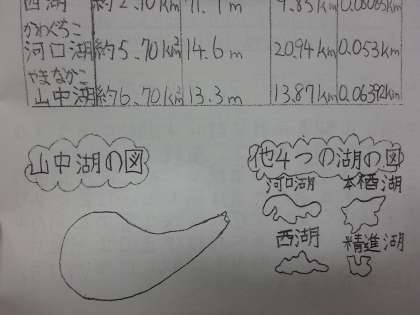 西湖 約2.10km² 71.7m 9.85km
かわぐちこ
河口湖 約5.70km² 14.6m 20.94km 0.053km
やまなかこ
山中湖 約6.70km² 13.3m 13.87km
山中湖の図 他4つの湖の図
河口湖 本栖湖
西湖 精進湖